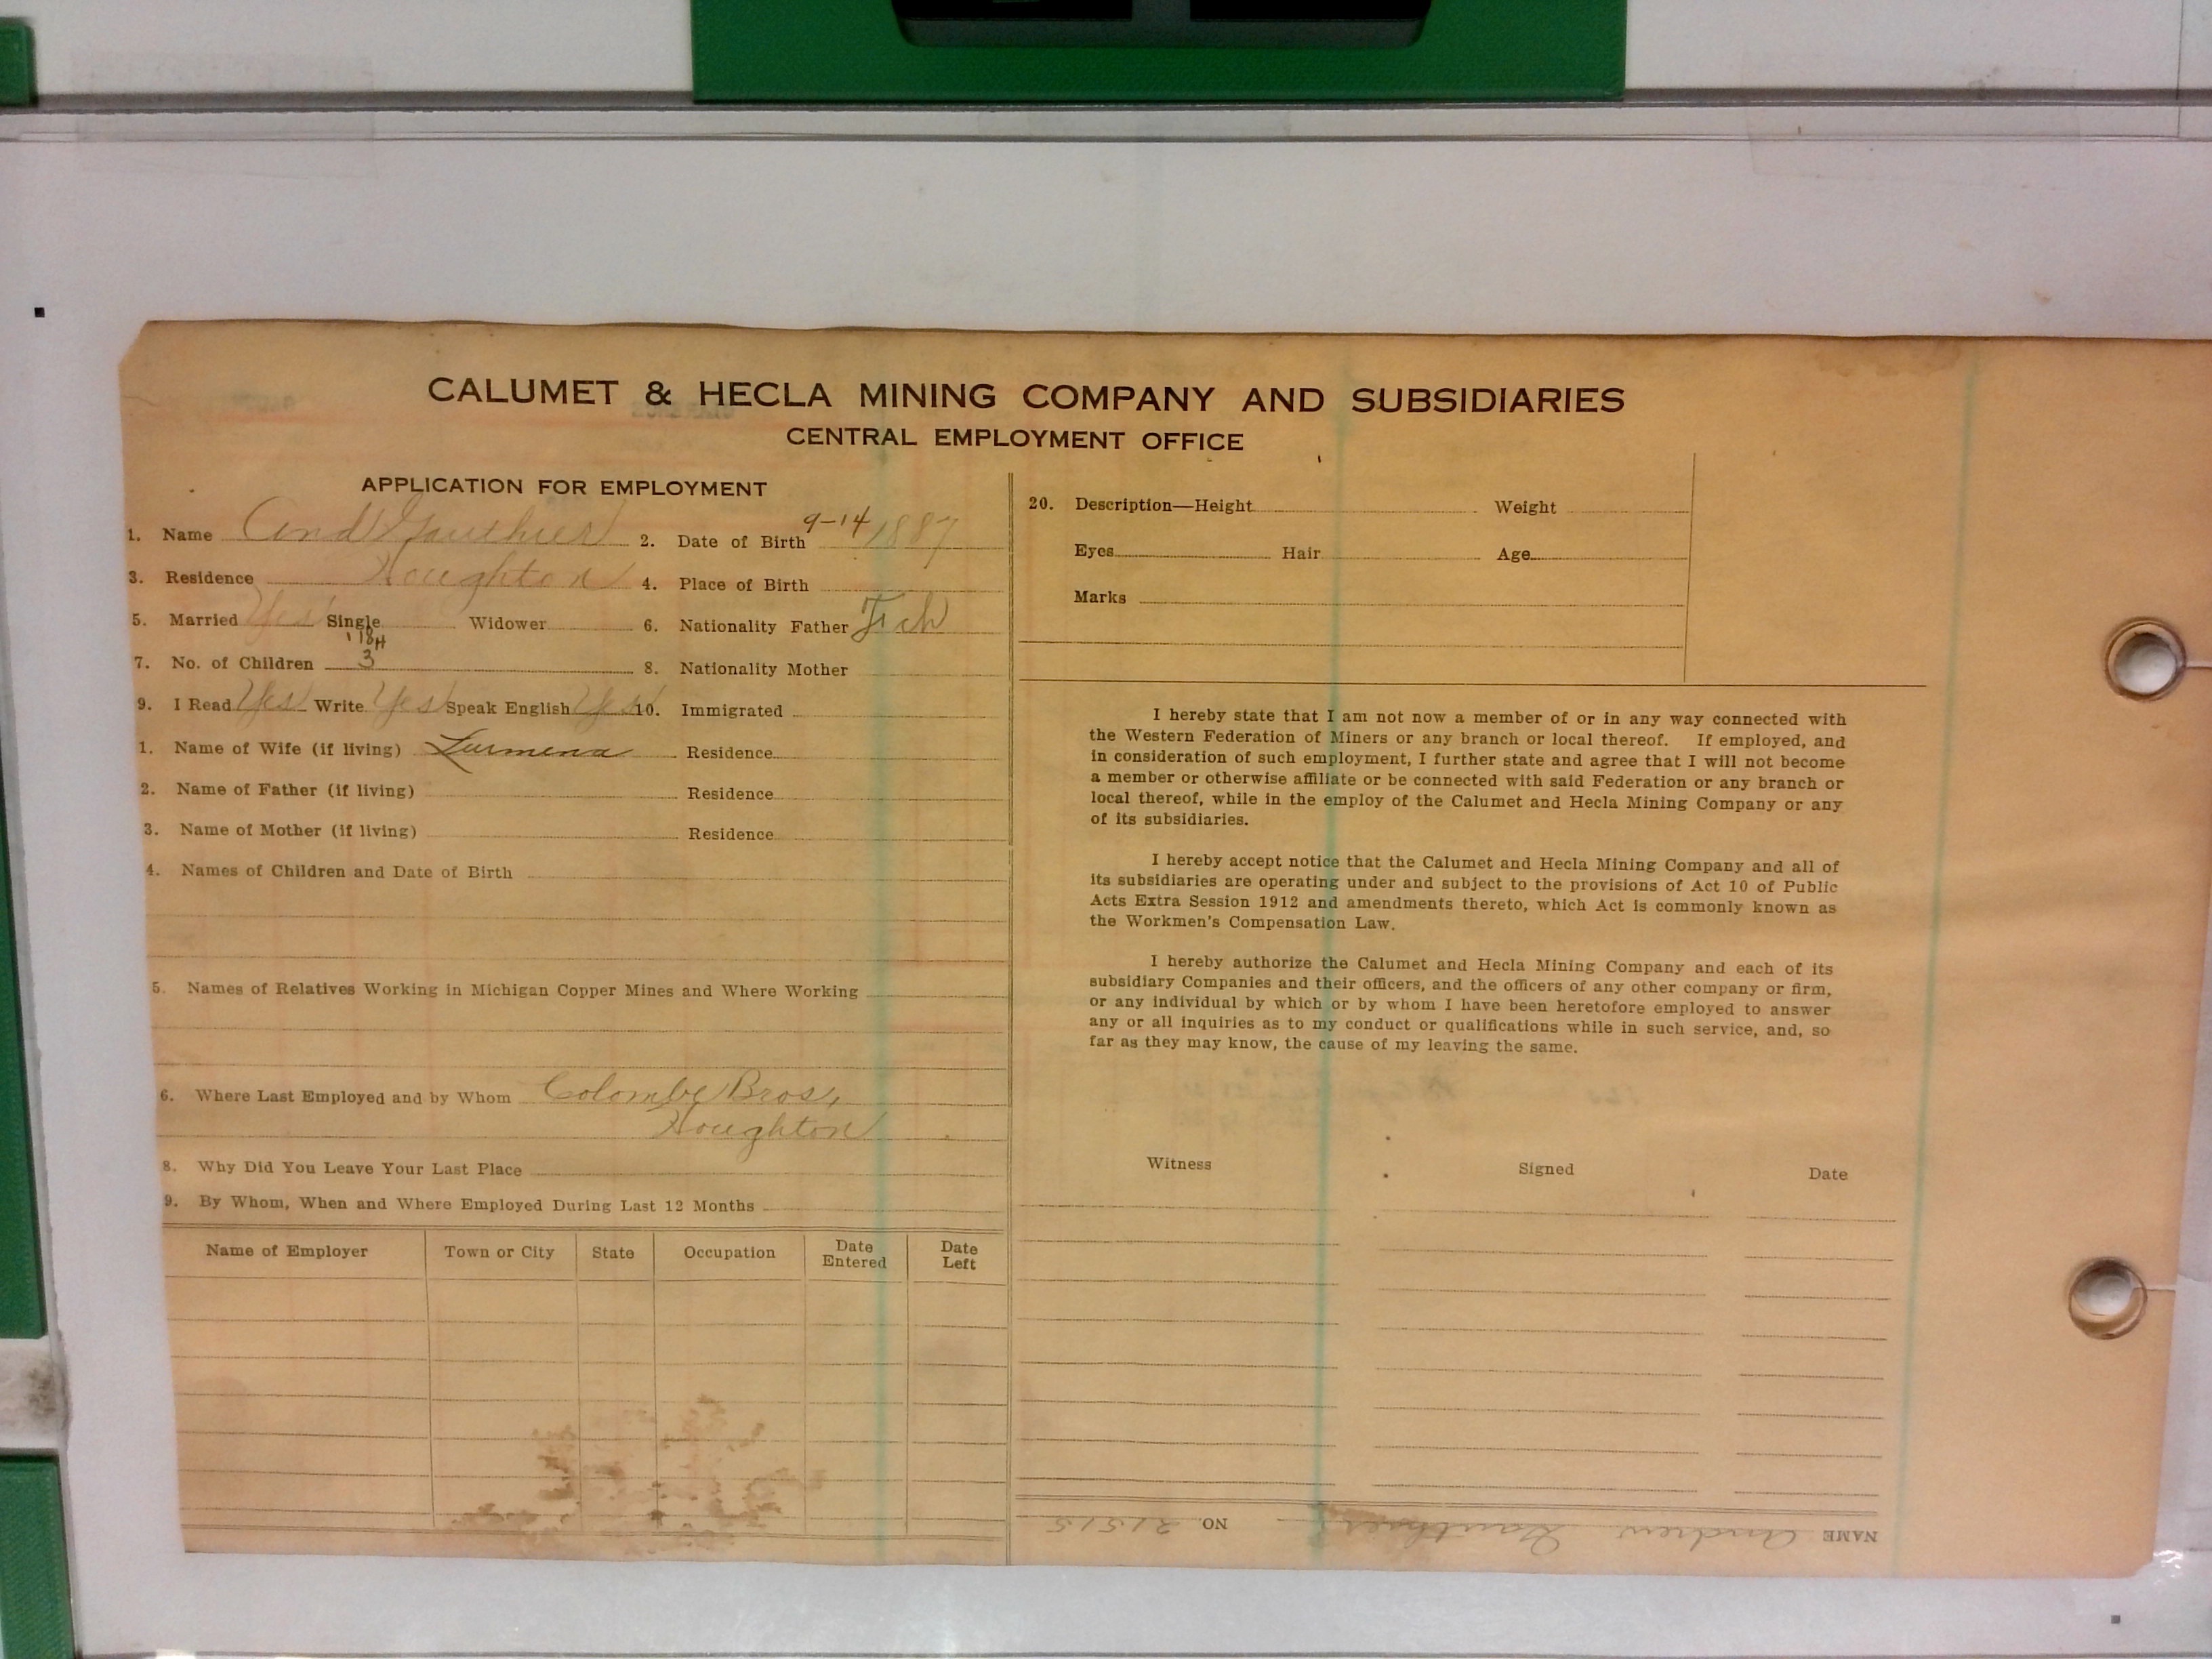 CALUMET & HECLA MINING COMPANY AND SUBSIDIARIES
CENTRAL EMPLOYMENT OFFICE
APPLICATION FOR EMPLOYMENT
1. Name And Gauthier 2. Date of Birth 9-14 1887
3. Residence Houghton 4. Place of Birth
5. Married Yes Single Widower 6. Nationality Father Fch
7. No. of Children 3 8. Nationality Mother
9. I Read Yes Write Yes Speak English Yes 10. Immigrated
1. Name of Wife (if living) Lumena Residence
2. Name of Father (if living) Residence
3. Name of Mother (if living) Residence
4. Names of Children and Date of Birth
5. Names of Relatives Working in Michigan Copper Mines and Where Working
6. Where Last Employed and by Whom Colombe Bros,
Houghton
8. Why Did You Leave Your Last Place
9. By Whom, When and Where Employed During Last 12 Months
Name of Employer Town or City State Occupation Date Entered Date Left
20. Description—Height Weight
Eyes Hair Age
Marks
I hereby state that I am not now a member of or in any way connected with
the Western Federation of Miners or any branch or local thereof. If employed, and
in consideration of such employment, I further state and agree that I will not become
a member or otherwise affiliate or be connected with said Federation or any branch or
local thereof, while in the employ of the Calumet and Hecla Mining Company or any
of its subsidiaries.
I hereby accept notice that the Calumet and Hecla Mining Company and all of
its subsidiaries are operating under and subject to the provisions of Act 10 of Public
Acts Extra Session 1912 and amendments thereto, which Act is commonly known as
the Workmen's Compensation Law.
I hereby authorize the Calumet and Hecla Mining Company and each of its
subsidiary Companies and their officers, and the officers of any other company or firm,
or any individual by which or by whom I have been heretofore employed to answer
any or all inquiries as to my conduct or qualifications while in such service, and, so
far as they may know, the cause of my leaving the same.
Witness Signed Date
NAME Andrew Gauthier NO 21515